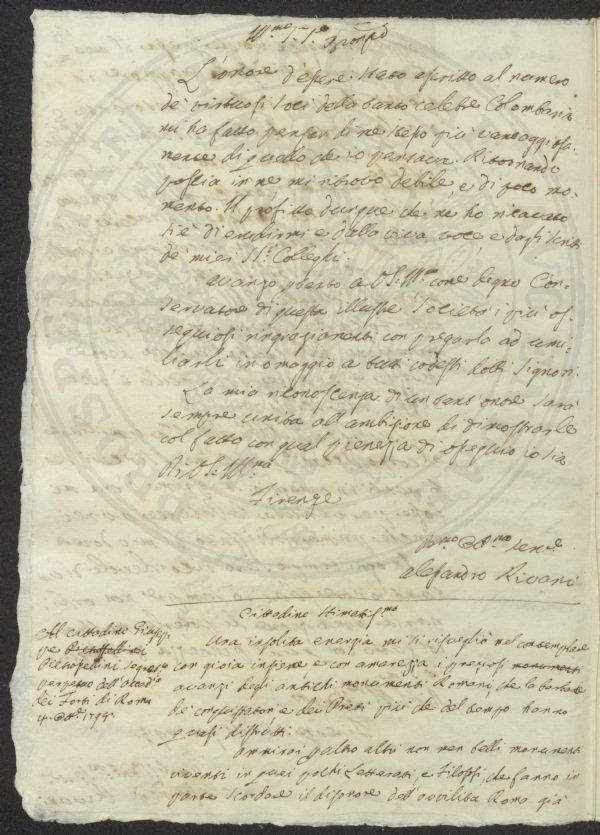 Ill.mo Sig.e
L'onore d'essere stato ascritto al numero
de' virtuosi soci della tanto celebre Colombaria
mi ha fatto pensar di me stesso più vantaggiosa-
mente di quello che io pensava. Ritornando
poscia in me mi ritrovo debile, e di poco mo-
mento. Il profitto dunque che ne ho ricavato
si è di erudirmi e dalla viva voce e dagli scritti
de' miei SS.i Colleghi.
Avanzo pertanto a V.S. Ill.ma come degno Con-
servatore di questa illustre Società i più os-
sequiosi ringraziamenti con pregarla ad umi-
liarli in omaggio a tutti codesti dotti Signori.
La mia riconoscenza di un tanto onore sarà
sempre unita all'ambizione di dimostrarle
col fatto con qual pienezza di ossequio io sia
Di V.S. Ill.ma
Firenze
Alessandro Rivani
Cittadino Stimatiss.mo
Al cittadino Giusep-
pe
Petrosellini segret.o
perpetuo dell'Accad.a
dei Forti di Roma
1799.
Una insolita energia mi si risvegliò nel contemplare
con gioia insieme e con amarezza i preziosi monumenti
avanzi degli antichi monumenti Romani, che la barbarie
de' conquistatori e dei Preti più che del tempo hanno
quasi distrutti.
Ammirai altri non men belli monumenti
viventi in quei Letterati, e Filosofi, che fanno in
parte scordare il disonore dell'avvilita Roma già